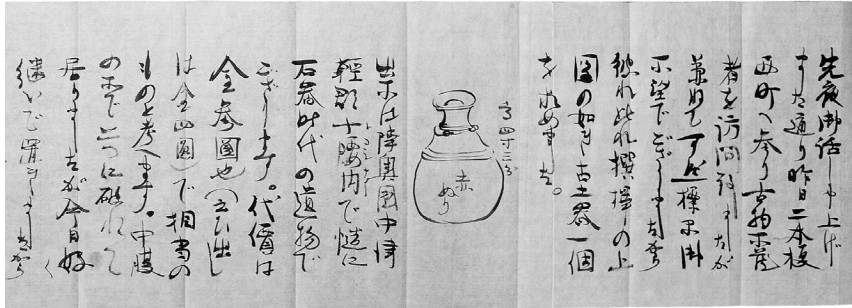 先夜御話し申上げ
ました通り昨日二本榎
西町へ参り古物所蔵
者を訪問致しましたが
兼ねて標品御
所望でございました故
彼れ此れ撰擇の上
圖の如き古土器一個
を求めました。
高四寸三分
赤ぬり
出所は陸奥國中津
輕郡十腰内で慥に
石器時代の遺物で
ございます。代價は
金参圓也(云ひ出し
は金四圓)で相當の
ものと考へます。中腹
の所で二つに破れて
居りましたが今日好く
継いで置きました故